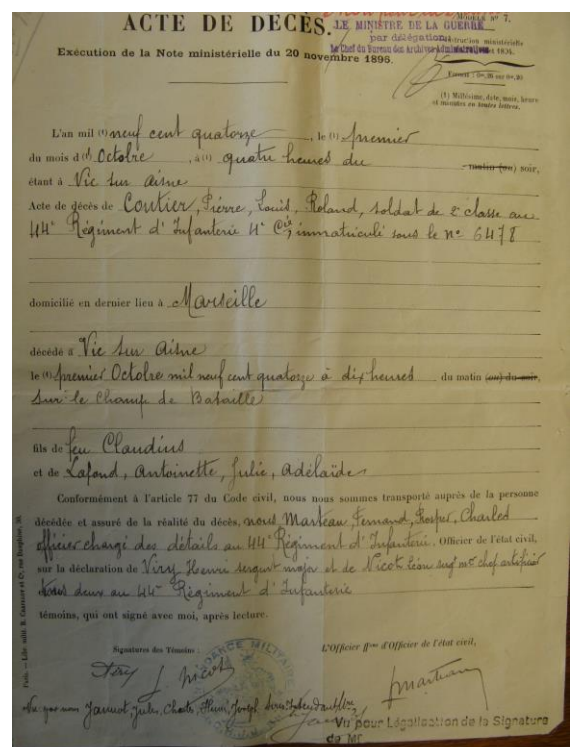 ACTE DE DÉCÈS.
MODÈLE Nº 7.
LE MINISTRE DE LA GUERRE
par délégation
Le Chef du Bureau des Archives Administratives
Instruction ministérielle
1894.
Exécution de la Note ministérielle du 20 novembre 1896.
(1) Millésime, date, mois, heure
et minutes en toutes lettres.
L'an mil (1) neuf cent quatorze, le (1) premier
du mois d(1) Octobre, à (1) quatre heures du matin (ou) soir,
étant à Vic sur Aisne
Acte de décès de Coutier, Pierre, Louis, Roland, soldat de 2e classe au
44e Régiment d'Infanterie 4e Cie, immatriculé sous le nº 6478
domicilié en dernier lieu à Marseille
décédé à Vic sur Aisne
le (1) premier Octobre mil neuf cent quatorze à dix heures du matin (ou) du soir,
sur le Champ de Bataille
fils de feu Claudius
et de Lafond, Antoinette, Julie, Adélaïde
Conformément à l'article 77 du Code civil, nous nous sommes transporté auprès de la personne
décédée et assuré de la réalité du décès, nous Marteau, Fernand, Prosper, Charles
officier chargé des détails au 44e Régiment d'Infanterie. Officier de l'état civil,
sur la déclaration de Viry Henri sergent major et de Nicot Léon chef artificier
tous deux au 44e Régiment d'Infanterie
témoins, qui ont signé avec moi, après lecture.
Signatures des Témoins :
L'Officier ffons d'Officier de l'état civil,
Nicot
Marteau
Vu par nous Jannot, Jules, Charles, Henri, Joseph Sous-Intendant
Vu pour Légalisation de la Signature
de Mr